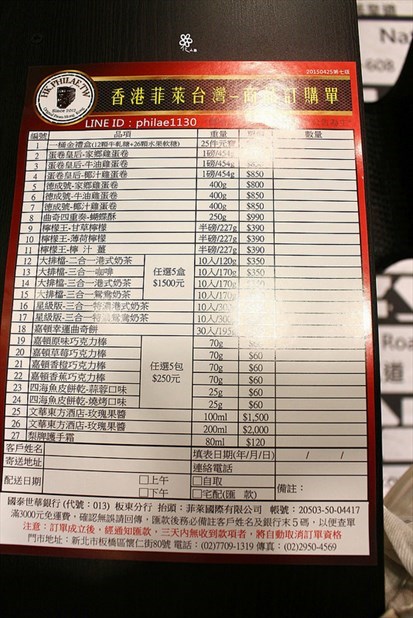 20150425第七版
HK.PHILAE.TW
Since 2002
香港菲萊台灣-商品訂購單
LINE ID：philae1130
編號 品項 重量 數量
1 一桶金禮盒(12顆牛軋糖+26顆水果軟糖) 25件元寶
2 蛋卷皇后-家鄉雞蛋卷 1磅/454g
3 蛋卷皇后-牛油雞蛋卷 1磅/454g
4 蛋卷皇后-椰汁雞蛋卷 1磅/454g $850
5 德成號-家鄉雞蛋卷 400g $800
6 德成號-牛油雞蛋卷 400g $850
7 德成號-椰汁雞蛋卷 400g $850
8 曲奇四重奏-蝴蝶酥 250g $990
9 檸檬王-甘草檸檬 半磅/227g $390
10 檸檬王-薄荷檸檬 半磅/227g $390
11 檸檬王-檸 汁 薑 半磅/227g $390
12 大排檔-三合一港式奶茶 10人/120g $350
13 大排檔-三合一咖啡 任選5盒 10人/170g $350
14 大排檔-三合一港式奶茶 $1500元 10人/170g $350
15 大排檔-三合一鴛鴦奶茶 10人/170g
16 星級版-三合一特濃港式奶茶
17 星級版-三合一特濃鴛鴦奶茶
18 嘉頓幸運曲奇餅 30人/195g
19 嘉頓原味巧克力棒 70g
20 嘉頓草莓巧克力棒 70g $60
21 嘉頓香橙巧克力棒 任選5包 70g $60
22 嘉頓香蕉巧克力棒 $250元 70g $60
23 四海魚皮餅乾-蒜蓉口味 25g $60
24 四海魚皮餅乾-燒烤口味 25g $60
25 文華東方酒店-玫瑰果醬 100ml $1,500
26 文華東方酒店-玫瑰果醬 200ml $2,000
27 梨牌護手霜 80ml $120
客戶姓名 填表日期(年/月/日) / /
寄送地址 連絡電話
配送日期 □上午 □自取 備註：
□下午 □宅配(匯 款)
國泰世華銀行 (代號：013) 板東分行 抬頭：菲萊國際有限公司 帳號：20503-50-04417
滿3000元免運費，確認無誤請回傳，匯款後務必備註客戶姓名及銀行末5碼，以便查單
注意：訂單成立後，經通知匯款，三天內無收到款項者，將自動取消訂單資格
門市地址：新北市板橋區懷仁街80號 電話：(02)7709-1319 傳真：(02)2950-4569
Nat
-608
Roa
道